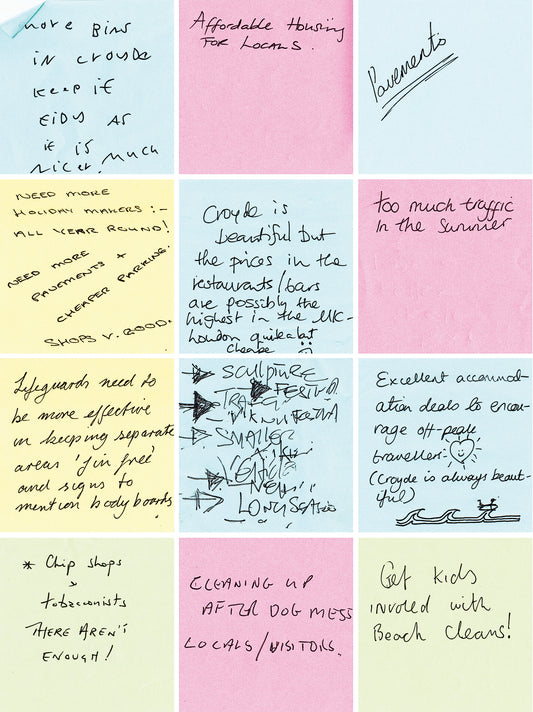 more Bins
in croyde
keep it
tidy as
it is
nicer. much
Affordable Housing
For Locals.
Pavements
NEED MORE
HOLIDAY MAKERS :-
ALL YEAR ROUND!
NEED MORE
PAVEMENTS +
CHEAPER PARKING.
SHOPS V. GOOD.
Croyde is
beautiful but
the prices in the
restaurants/bars
are possibly the
highest in the UK-
London quite a bit
cheaper
too much traffic
In the Summer
Lifeguards need to
be more effective
in keeping separate
areas 'fin free'
and signs to
mention bodyboards
SCULPTURE
FESTIVAL
SMALLER
LONG SEATS
Excellent accommod-
ation deals to encou-
rage off-peak
traveller
(Croyde is always beaut-
iful)
* Chip shops
tobacconists
THERE AREN'T
ENOUGH!
CLEANING UP
AFTER DOG MESS
LOCALS/VISITORS.
Get kids
involed with
Beach Cleans!